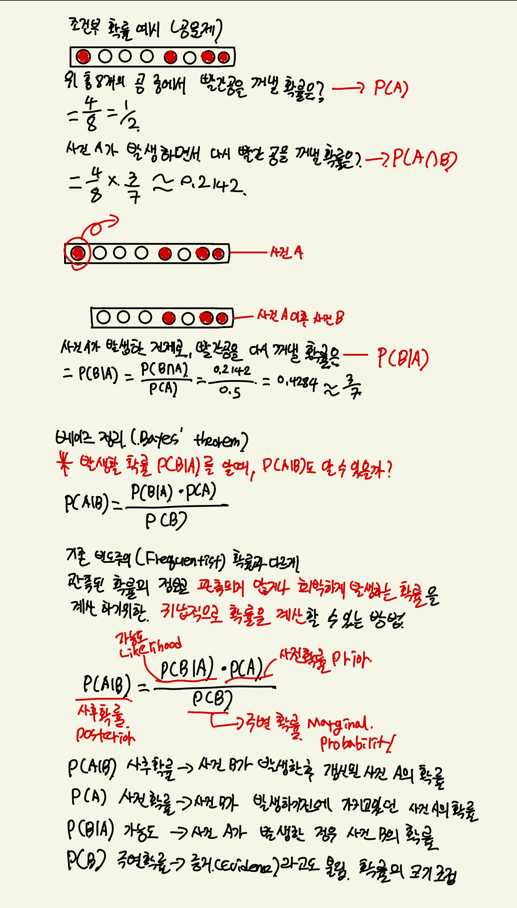 조건부 확률 예시 (공문제)
위 총 8개의 공 중에서 빨간공을 꺼낼 확률은? → P(A)
= 4/8 = 1/2.
사건 A가 발생하면서 다시 빨간 공을 꺼낼 확률은? → P(A∩B)
= 4/8 × 3/7 ≈ 0.2142.
사건 A
사건 A 이후 사건 B
사건 A가 발생한 전제로, 빨간공을 다시 꺼낼 확률은 P(B|A)
= P(B|A) = P(B∩A)/P(A) = 0.2142/0.5 = 0.4284 ≈ 3/7
베이즈 정리 (Bayes' theorem)
* 발생할 확률 P(B|A)를 알때, P(A|B)도 알 수 있을까?
P(A|B) = P(B|A)·P(A) / P(B)
기존 빈도주의 (Frequentist) 확률과 다르게
관측된 확률의 정보로 관측되지 않거나 희박하게 발생하는 확률을
계산 하기위한. 귀납적으로 확률을 계산할 수 있는 방법.
가능도
Likelihood
사전확률 Prior
P(A|B) = P(B|A)·P(A) / P(B)
사후확률.
posterior
주변 확률 Marginal.
Probability
P(A|B) 사후확률 → 사건 B가 발생한후 갱신된 사건 A의 확률
P(A) 사전확률 → 사건 B가 발생하기전에 가지고있던 사건 A의 확률
P(B|A) 가능도 → 사건 A가 발생한 경우 사건 B의 확률
P(B) 주변확률 → 증거(Evidence)라고도 불림. 확률의 크기 조절